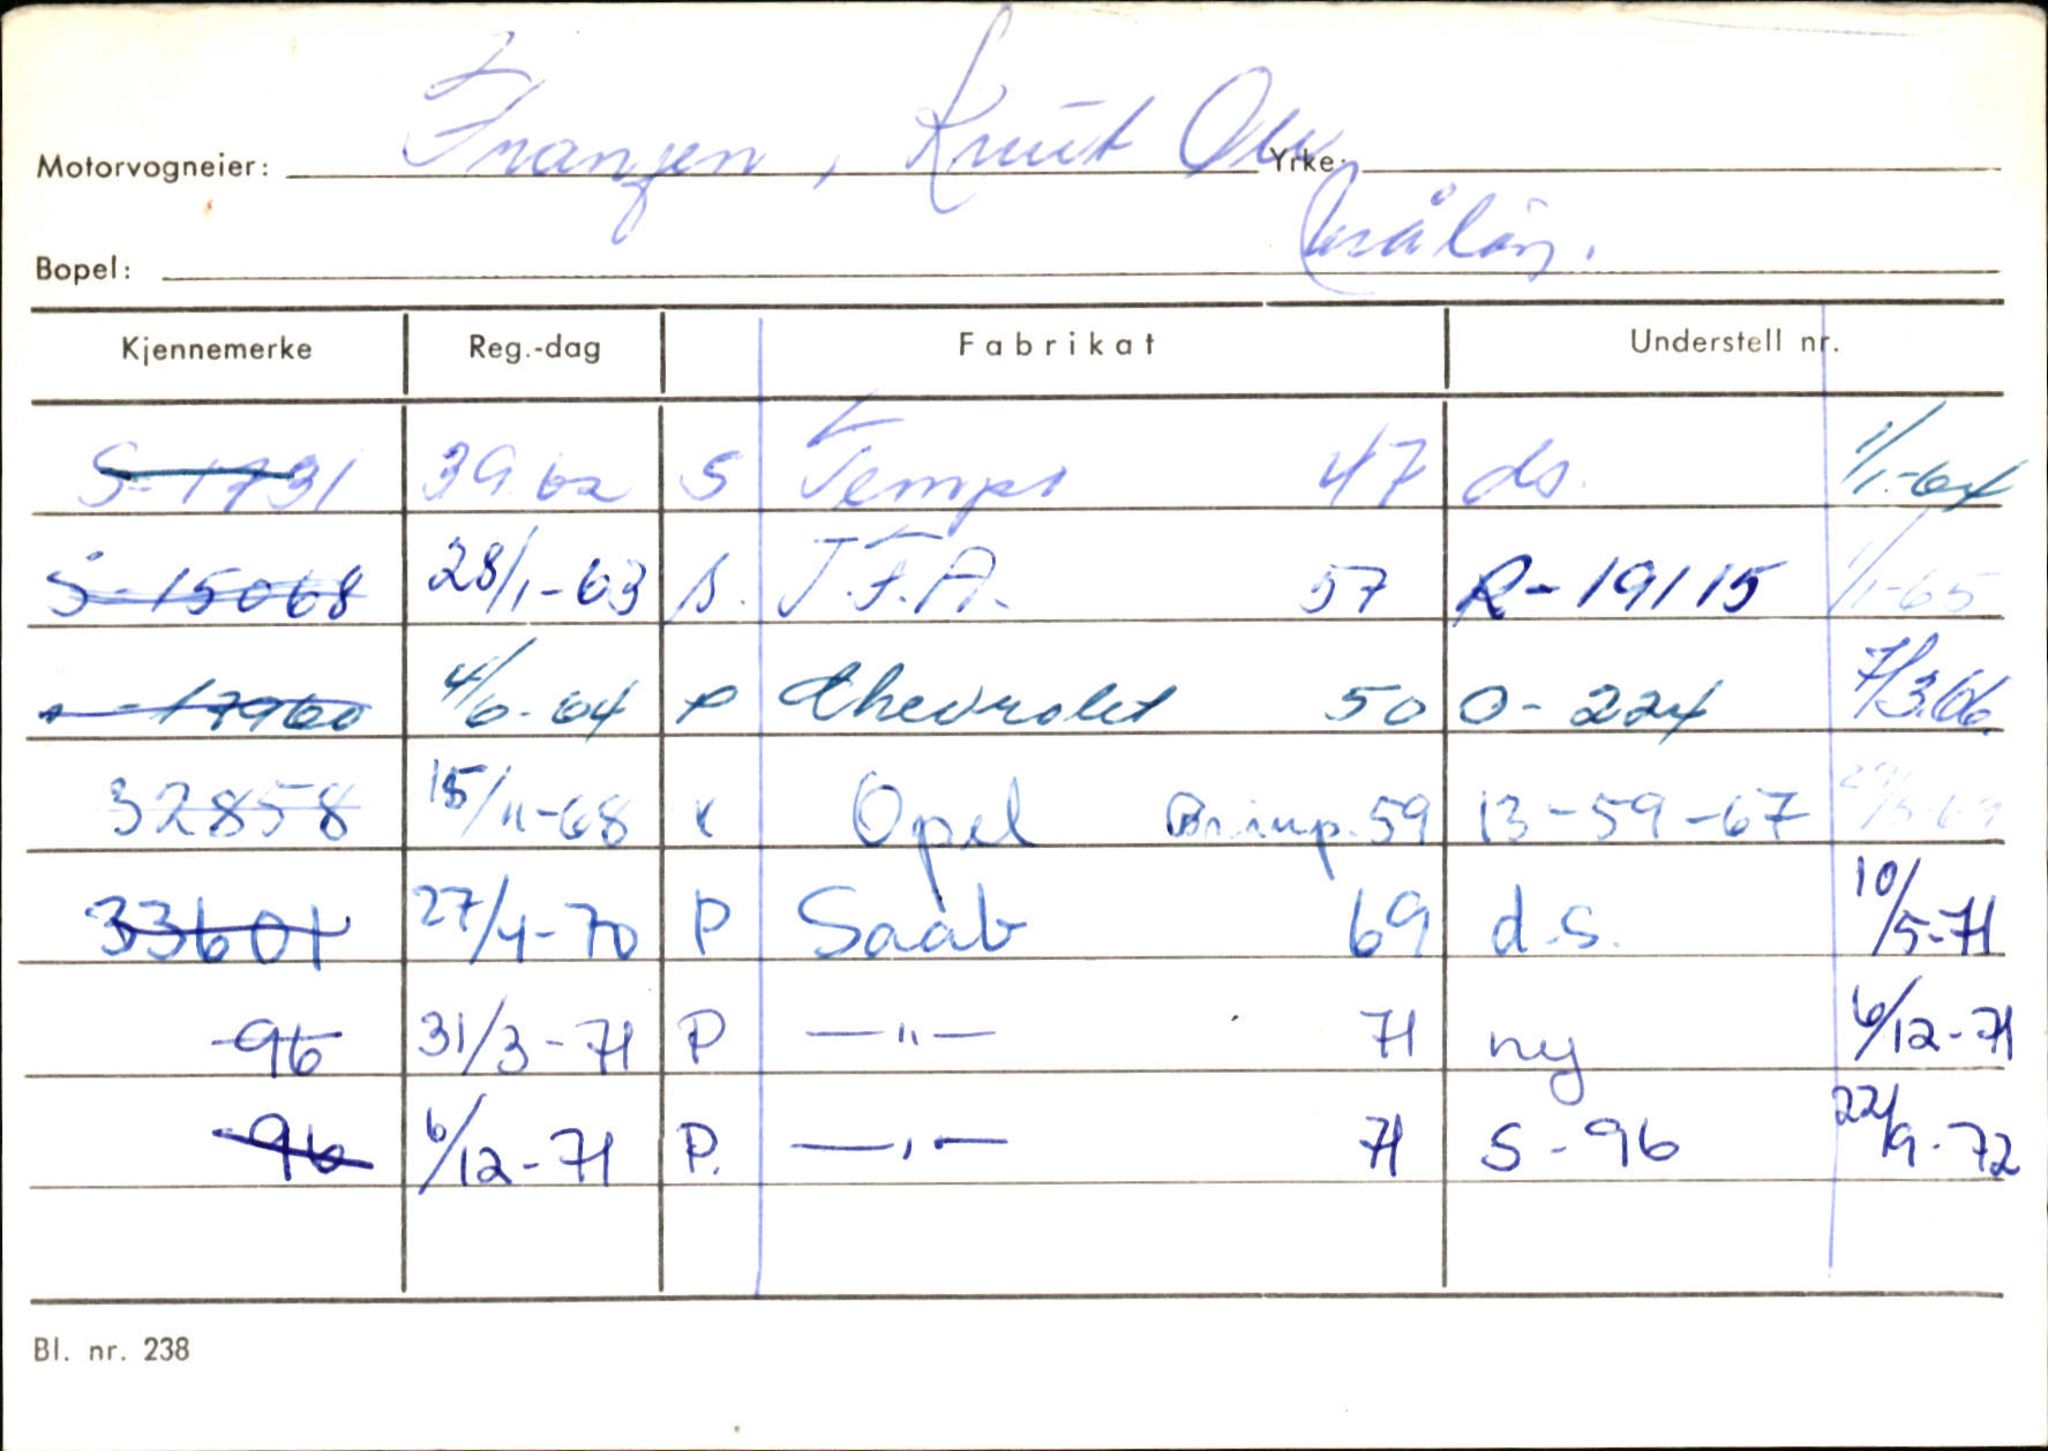 Motorvogneier: Franzen, Knut Olav Yrke:
Bopel:
Kjennemerke Reg.-dag Fabrikat Understell nr.
S-1731 S Tempo 47 ds. 1/1-64
S-15068 28/1-63 57 R-19115 1/1-65
"-17960 4/6-64 P Chevrolet 50 O-224 7/3.66.
32858 15/11-68 Opel 59 13-59-67
33601 27/4-70 P Saab 69 d.s. 10/5-71
96 31/3-71 P —"— 71 ny 6/12-71
96 6/12-71 P. —"— 71 S-96 22/9-72
Bl. nr. 238